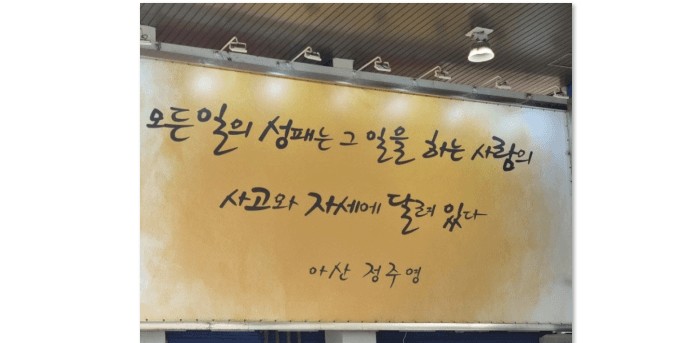 모든 일의 성패는 그 일을 하는 사람의
사고와 자세에 달려 있다
아산 정주영